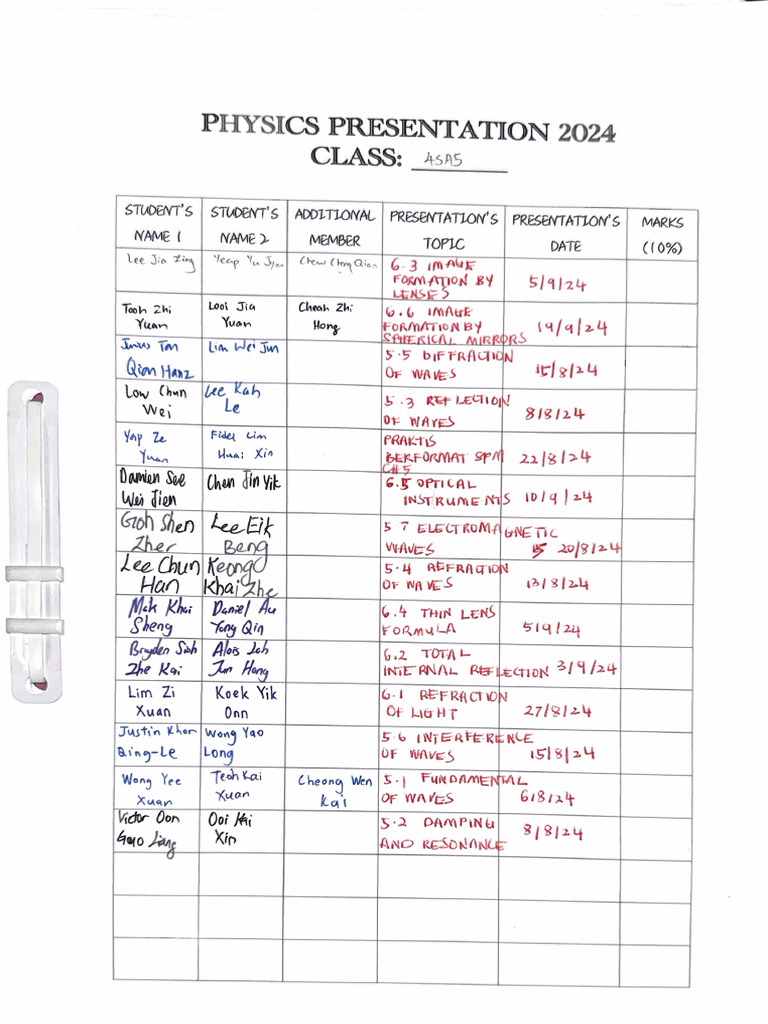 PHYSICS PRESENTATION 2024
CLASS: 4SA5
STUDENT'S NAME 1 STUDENT'S NAME 2 ADDITIONAL MEMBER PRESENTATION'S TOPIC PRESENTATION'S DATE MARKS (10%)
Lee Jia Zing Yeap Yu Chew Cheng Qian 6.3 IMAGE FORMATION BY LENSES 5/9/24
Tooh Zhi Yuan Looi Jia Yuan Cheah Zhi Hong 6.6 IMAGE FORMATION BY SPHERICAL MIRRORS 19/9/24
Junus Tan Qian Hanz Lim Wei Jun 5.5 DIFFRACTION OF WAVES 15/8/24
Low Chun Wei Lee Kah Le 5.3 REFLECTION OF WAVES 8/8/24
Yap Ze Yuan Fidel Lim Huai Xin PRAKTIS BERFORMAT SPM CH5 22/8/24
Damien See Wei Jien Chen Jin Yik 6.5 OPTICAL INSTRUMENTS 10/9/24
Goh Shen Zher Lee Eik Beng 5.7 ELECTROMAGNETIC WAVES 20/8/24
Lee Chun Han Keong Khai Zhe 5.4 REFRACTION OF WAVES 13/8/24
Mak Khai Sheng Daniel Au Yong Qin 6.4 THIN LENS FORMULA 5/9/24
Brayden Siah Zhe Kai Alois Loh Jun Hang 6.2 TOTAL INTERNAL REFLECTION 3/9/24
Lim Zi Xuan Koek Yik Onn 6.1 REFRACTION OF LIGHT 27/8/24
Justin Khor Qing-Le Wong Yao Long 5.6 INTERFERENCE OF WAVES 15/8/24
Wong Yee Xuan Teoh Kai Xuan Cheong Wen Kai 5.1 FUNDAMENTAL OF WAVES 6/8/24
Victor Oon Guo Liang Ooi Kai Xin 5.2 DAMPING AND RESONANCE 8/8/24